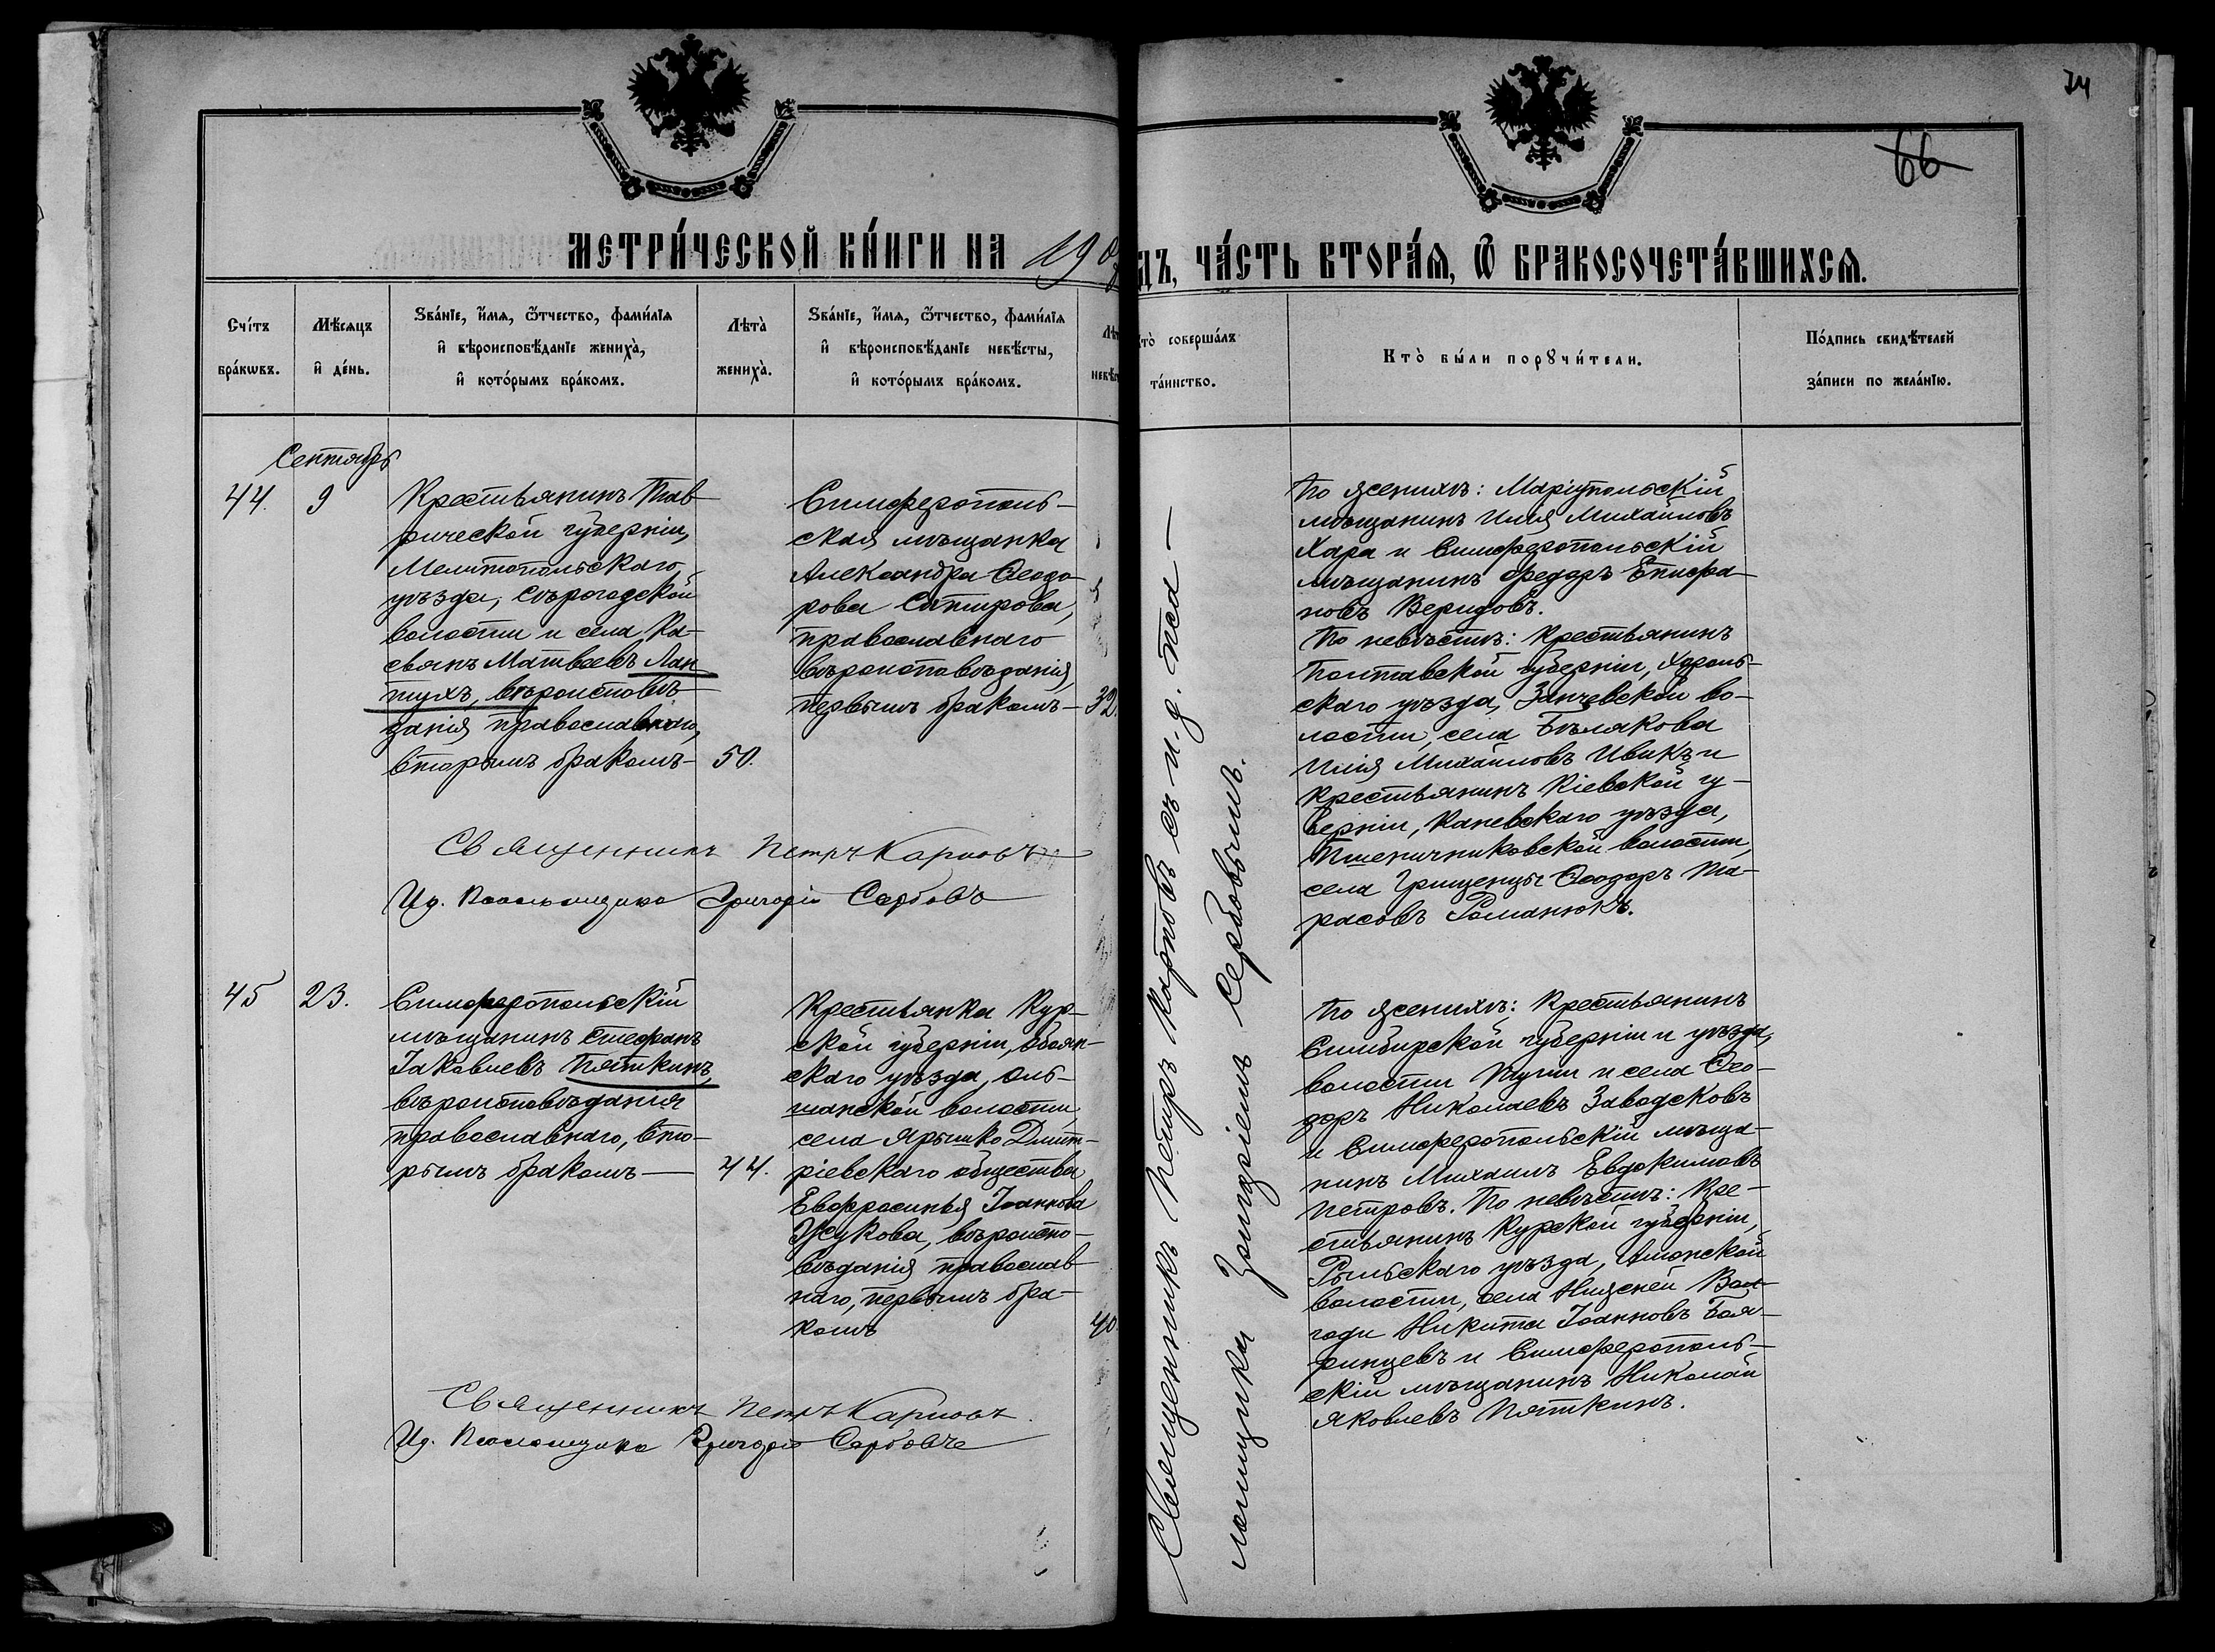 74
66
МЕТРИ́ЧЕСКОЙ КНИ́ГИ НА 190
ДЪ, ЧА́СТЬ ВТОРА́Я, Ѿ БРАКОСОЧЕТА́ВШИХСЯ.
Счі́тъ бра́кѡвъ.
Мѣ́сяцъ и҆ де́нь.
Ѕва́нїе, и҆́мя, ѻ҆́тчество, фами́лїя
и҆ вѣроисповѣ́данїе жениха̀,
и҆ кото́рымъ бра́комъ.
Лѣта̀ жениха̀.
Ѕва́нїе, и҆́мя, ѻ҆́тчество, фами́лїя
и҆ вѣроисповѣ́данїе невѣ́сты,
и҆ кото́рымъ бра́комъ.
Лѣт
невѣс
то̀ соверша́лъ
та́инство.
Кто̀ бы́ли порꙋчи́тели.
По́дпись свидѣ́телей
за́писи по жела́нїю.
Сентябрь
44. 9
Крестьянинъ Тав-
рической губерніи,
Мелитопольскаго
уѣзда, Сѣрогозской
волости и села, Ка-
сьянъ Матвѣевъ Лап-
тухъ, вѣроисповѣ-
данія православнаго,
вторымъ бракомъ-
50.
Симферополь-
ская мѣщанка
Александра Ѳеодо-
рова Сатирова,
православнаго
вѣроисповѣданія,
первымъ бракомъ-
32.
Священникъ Петръ Карповъ
Ид. Псаломщика Григорій Сербовъ
По женихѣ: Маріупольскій
мѣщанинъ Илія Михайловъ
Хара и Симферопольскій
мѣщанинъ Ѳедоръ Епифа-
новъ Веридовъ.
По невѣстѣ: Крестьянинъ
Полтавской губерніи, Хороль-
скаго уѣзда, во-
лости, села Бѣлякова
Илія Михайловъ Ивикъ и
Крестьянинъ Кіевской гу-
берніи, Каневскаго уѣзда,
Пшеничниковской волости,
села Грищенцы Ѳеодоръ Та-
расовъ Романюкъ.
45 23.
Симферопольскій
мѣщанинъ Стефанъ
Іаковлевъ Пяткинъ,
вѣроисповѣданія
православнаго, вто-
рымъ бракомъ-
44.
Крестьянка Кур-
ской губерніи, Обоян-
скаго уѣзда, Оль-
шанской волости
села Ярышко Дмит-
ріевскаго общества
Евфросинья Іоаннова
Жукова, вѣроиспо-
вѣданія православ-
наго, первымъ бра-
комъ
40.
Священникъ Петръ Карповъ
Ид. Псаломщика Григорій Сербовъ
По женихѣ: Крестьянинъ
Симбирской губерніи и уѣзда,
волости и села Ѳео-
доръ Николаевъ Заводсковъ
и Симферопольскій мѣща-
нинъ Михаилъ Евдокимовъ
Петровъ. По невѣстѣ: Кре-
стьянинъ Курской губерніи,
Рыльскаго уѣзда, Амонской
волости, села Нижней
Никита Іоанновъ Боя-
ринцевъ и Симферополь-
скій мѣщанинъ Николай
Яковлевъ Пяткинъ.
Священникъ Петръ Карповъ съ и. д. пса-
ломщика Григоріемъ Сербовымъ.